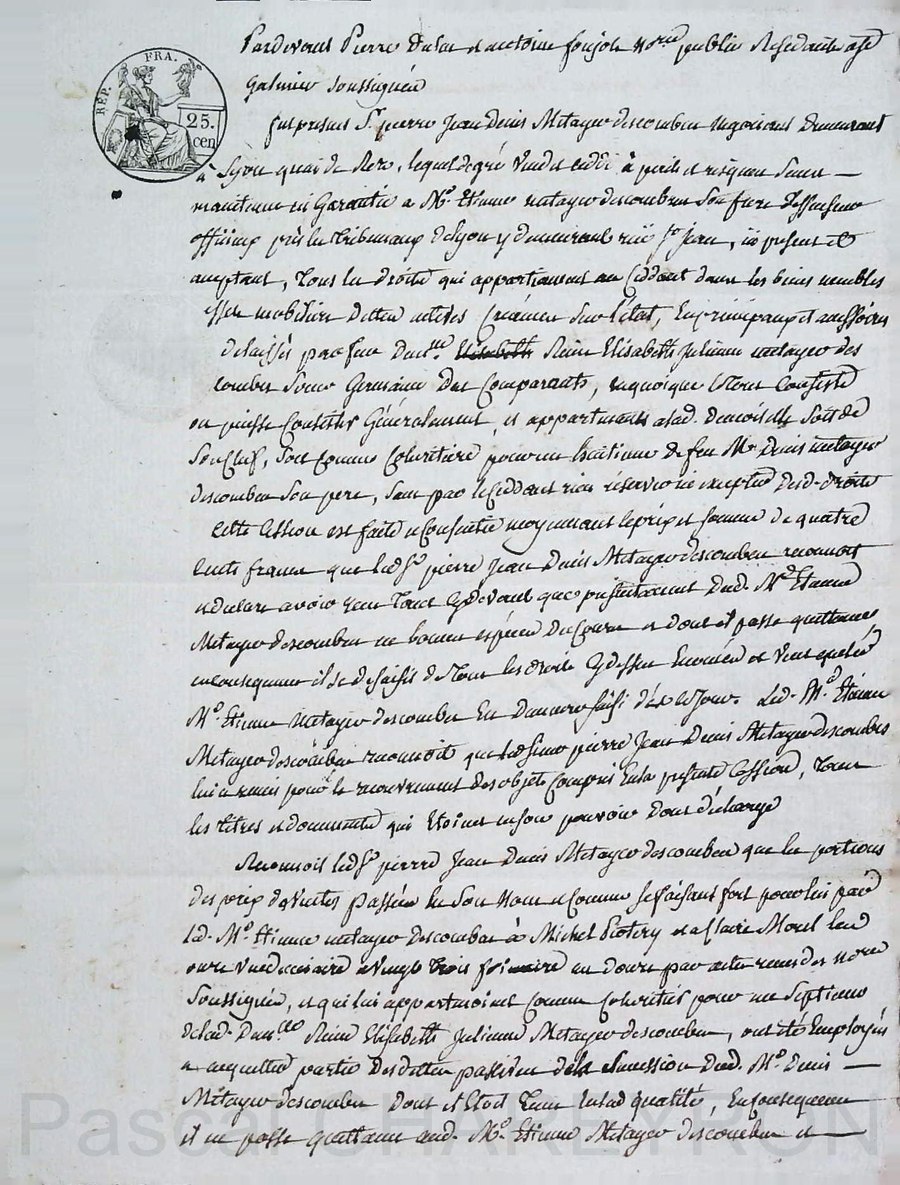 RÉP. FRA.
25.
cen
Pardevant Pierre Dulac et antoine foujols Nores public Residants a St
Galmier soussignés
fut present Sr. pierre Jean Denis Metayer descombes negociant Demeurant
a Lyon quai de Retz, lequel de gré vend et cedde à perils et risques sans —
maintenue ni Garantie a Me. Etienne metayer descombes son frere deffenseur
officieux près les tribunaux de Lyon y demeurant rue St. Jean, ici present et
acceptant, Tous les droits qui appartiennent au Ceddant dans les biens meubles
effets mobiliers dettes actives Créances sur l'état, En principaux et accessoires
delaissés par feue Dame. Elisabeth Reine Elisabeth Julienne metayer des
combes soeur Germaine Des Comparants, en quoique le tout Consiste
ou puisse Consister Généralement, et appartenants a lad. demoiselle soit de
Son Chef, soit Comme Coheritiere pour un de feu Me Denis metayer
descombes son pere, sans par le Ceddant rien réserver ni excepter desd. droits
Cette Cession est faite et Consentie moyennant le prix et somme de quatre
cents francs que led Sr. pierre Jean Denis Metayer descombes reconnoit
et declare avoir reçu tant Cydevant que presentement Dud. Me. Etienne
Metayer descombes en bonnes espèces du Cours et dont il passe quittance,
en consequence il se desaisit de Tous les droits Cydessus Enoncés et veut que led
Me. Etienne metayer descombes En Demeure saisi dès ce Jour. Led. Me. Etienne
Metayer descombes reconnoit que led Sieur pierre Jean Denis Metayer descombes
lui a remis pour le recouvrement des objets Compris En la presente Cession, Tous
les titres et documents qui Etoient en son pouvoir Dont décharge
Reconnoit led Sr. pierre Jean Denis Metayer descombes que les portions
des prix de ventes passées En Son Nom et Comme se faisant fort pour lui par
Led. Me. Etienne metayer descombes à Michel et a Claire Morel
vendemiaire et vingt trois frimaire an douze par actes reçus des Nores
Soussignés, et qui lui appartenoient Comme Coheritier pour un Septieme
de lad. Damelle Reine Elisabeth Julienne Metayer descombes, ont été Employés
a acquitter partie des dettes passives de la succession dud. Me. Denis —
Metayer descombes Dont il Etoit Tenu En lad qualité, En consequence
il en passe quittance aud. Me. Etienne Metayer descombes et —
Pascal CHARLEYRON